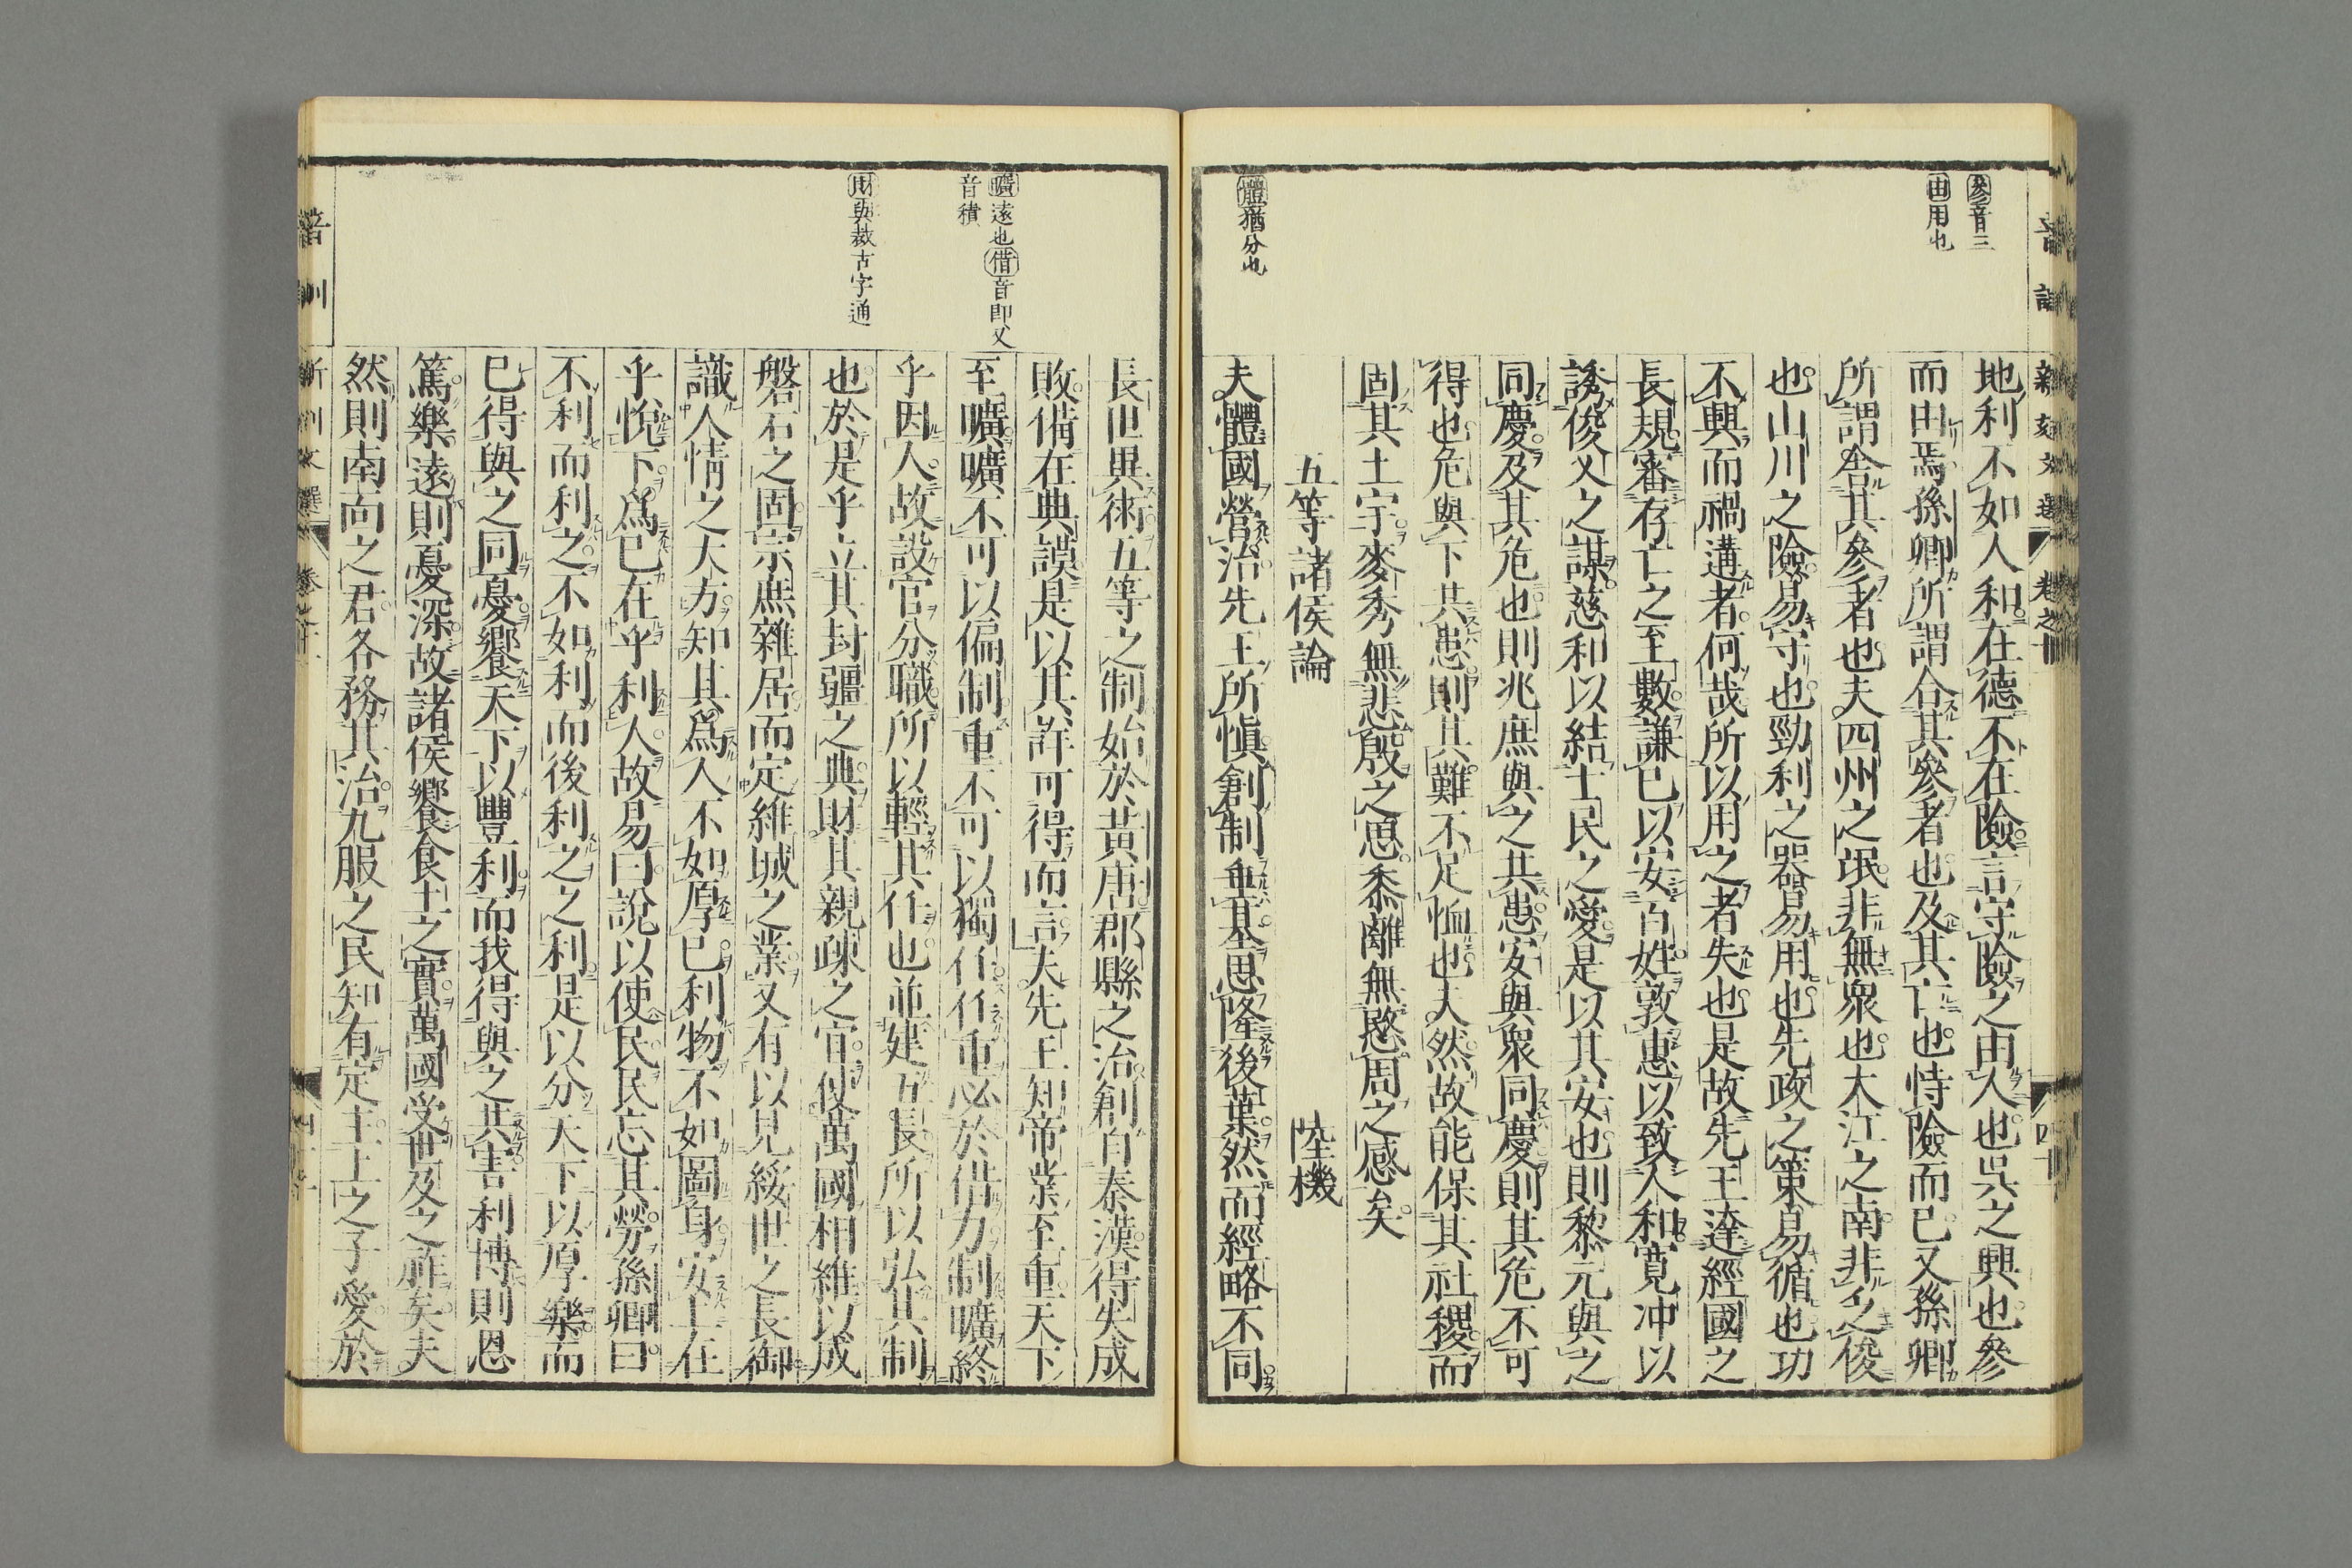 參音三
由用也
體猶分也
地利不如人和在德不在險言守險之由人也吳之興也參
而由焉孫卿所謂合其參者也及其亡也恃險而已又孫卿
所謂舍其參者也夫四州之氓非無衆也大江之南非乏俊
也山川之險易守也勁利之器易用也先政之策易循也功
不興而禍遘者何哉所以用之者失也是故先王達經國之
長規審存亡之至數謙已以安百姓敦惠以致人和寛冲以
誘俊乂之謀慈和以結士民之愛是以其安也則黎元與之
同慶及其危也則兆庶與之共患安與衆同慶則其危不可
得也危與下共患則其難不足恤也夫然故能保其社稷而
固其土宇麥秀無悲殷之思黍離無愍周之感矣
五等諸侯論 陸機
夫體國營治先王所愼創制垂基思隆後葉然而經略不同
曠遠也借音即又
音積
財與裁古字通
長世異術五等之制始於黃唐郡縣之治創自秦漢得失成
敗備在典謨是以其詳可得而言夫先王知帝業至重天下
至曠曠不可以偏制重不可以獨任任重必於借力制曠終
乎因人故設官分職所以輕其任也並建五長所以弘其制
也於是乎立其封疆之典財其親疎之宜使萬國相維以成
磐石之固宗庶雜居而定維城之業又有以見綏世之長御
識人情之大方知其爲人不如厚已利物不如圖身安上在
乎悅下爲已在乎利人故易曰說以使民民忘其勞孫卿曰
不利而利之不如利而後利之之利是以分天下以厚樂而
已得與之同憂饗天下以豐利而我得與之共害利博則恩
篤樂遠則憂深故諸侯饗食土之實萬國受世及之祚矣夫
然則南面之君各務其治九服之民知有定主上之子愛於